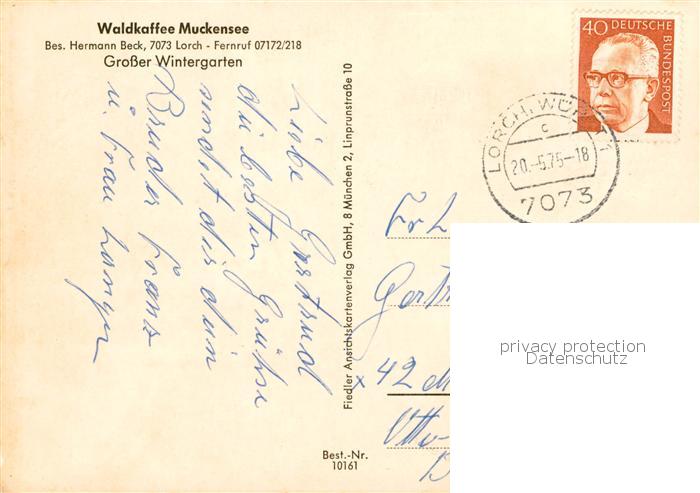 Waldkaffee Muckensee
Bes. Hermann Beck, 7073 Lorch - Fernruf 07172/218
Großer Wintergarten
Liebe Gertrud
die besten Grüße
sendet dir dein
Bruder Franz
u. Frau
Fiedler Ansichtskartenverlag GmbH, 8 München 2, Linprunstraße 10
Best.-Nr.
10161
40 DEUTSCHE
BUNDESPOST
LORCH, WÜRTT
c
20.-5.75-18
7073
Frl
Gertr
42 M
Otto-
privacy protection
Datenschutz